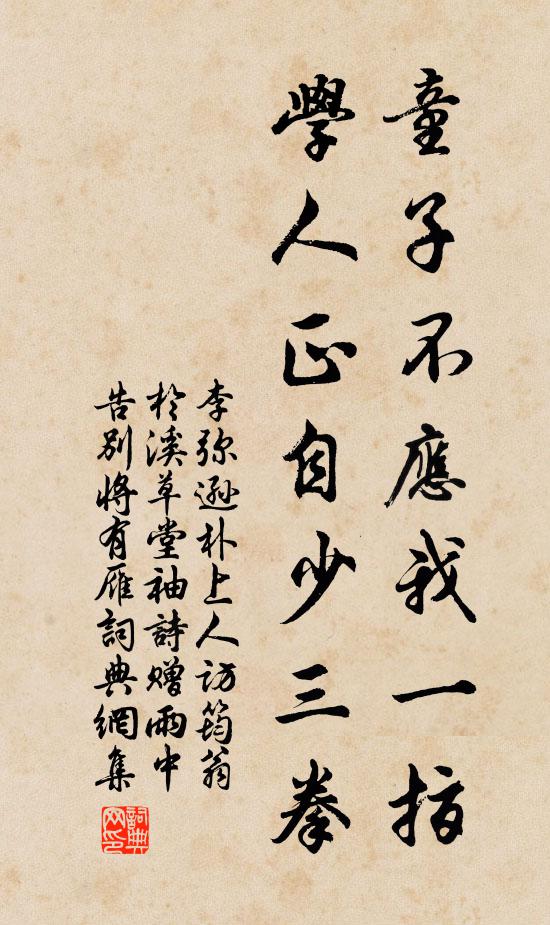 童子不應我一指
學人正自少三拳
李弥遜朴上人访筠翁
於溪草堂袖詩贈雨中
告别將有雁詞典網集
詞典网印